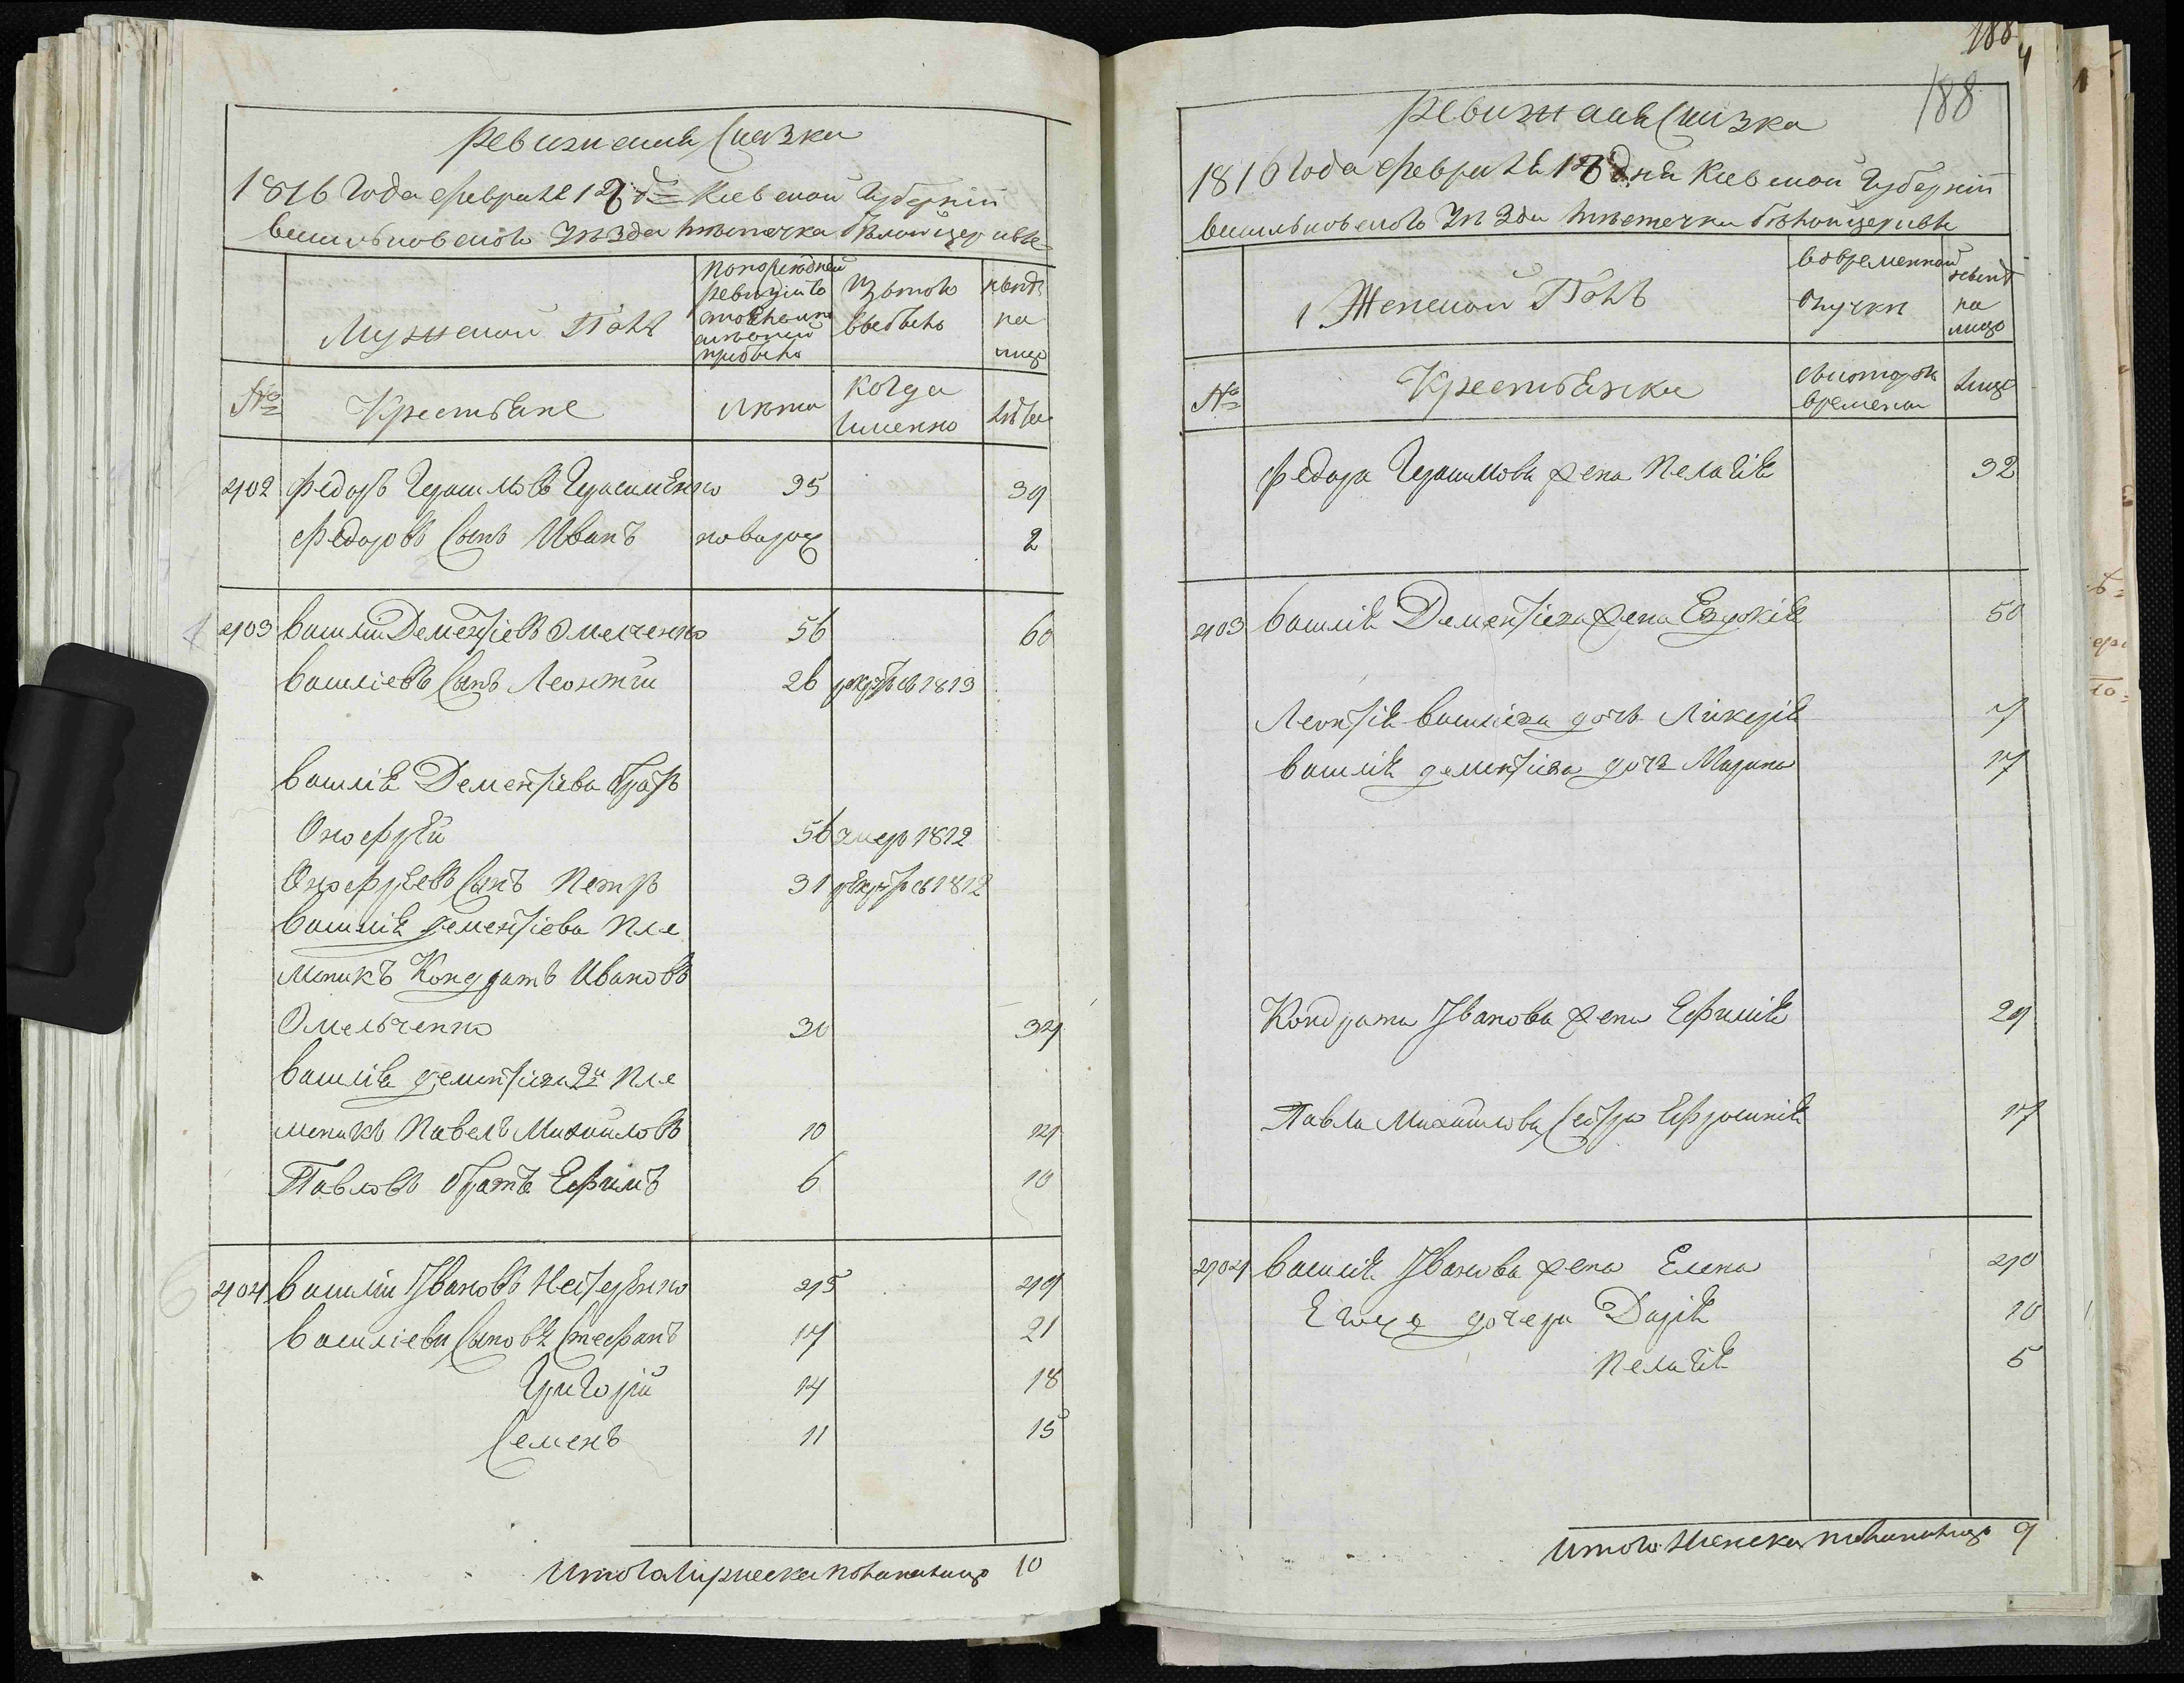 Ревижская Сказка
1816 Года февраля 12 д= Киевской Губернiи
василковского уѣзда мѣстечка Бѣлой церкве
Мужеской Полъ
по последней ревизiи состояло и после оной прибыло
Изтого выбыло
ныне на лицо
№ Крестьяне
лѣта
когда именно
лѣта
402 Федоръ Герасимовъ Герасименко 35 39
Федоровъ Сынъ Иванъ новорож 2
403 василiй Дементiевъ Омелченко 56 60
василiевъ Сынъ Леонтiй 26 рекрутъ въ 1813
василiя Дементiева братъ
Онофрей 56 умер 1812
Онофрѣевъ Сынъ Петръ 31 рекрутъ въ 1812
василiя дементiева пле
мяникъ Кондратъ Ивановъ
Омельченко 30 34
василiя дементiева 2й пле
меникъ Павелъ Михайловъ 10 14
Павловъ братъ Ефимъ 6 10
404 василiй Iвановъ Нестеренко 45 49
василiеви Сыновя Стефанъ 17 21
Григорiй 14 18
Семенъ 11 15
Итого мужеска пола налицо 10
188
188
4
Ревижская Сказка
1816 года февраля 12 дня Киевской Губернiи
василковского уѣзда мѣстечка Бѣлойцеркве
1 Женской Полъ
вовременной отлучки
ныне на лицо
№ Крестьянки
скоторого времени
лица
Федора Герасимова жена Пелагiя 32
403 василiя Дементiева жена Евдокiя 50
Леонтiя василiева дочь Ликерiя 7
василiя дементiева дочь Марина 17
Кондрата Iванова жена Ефимiя 29
Павла Михайлова Сестра Ефросинiя 17
404 василiя Iванова жена Елена 40
Егоже дочери Дарiя 10
Пелагiя 5
Итого женска пола налицо 9